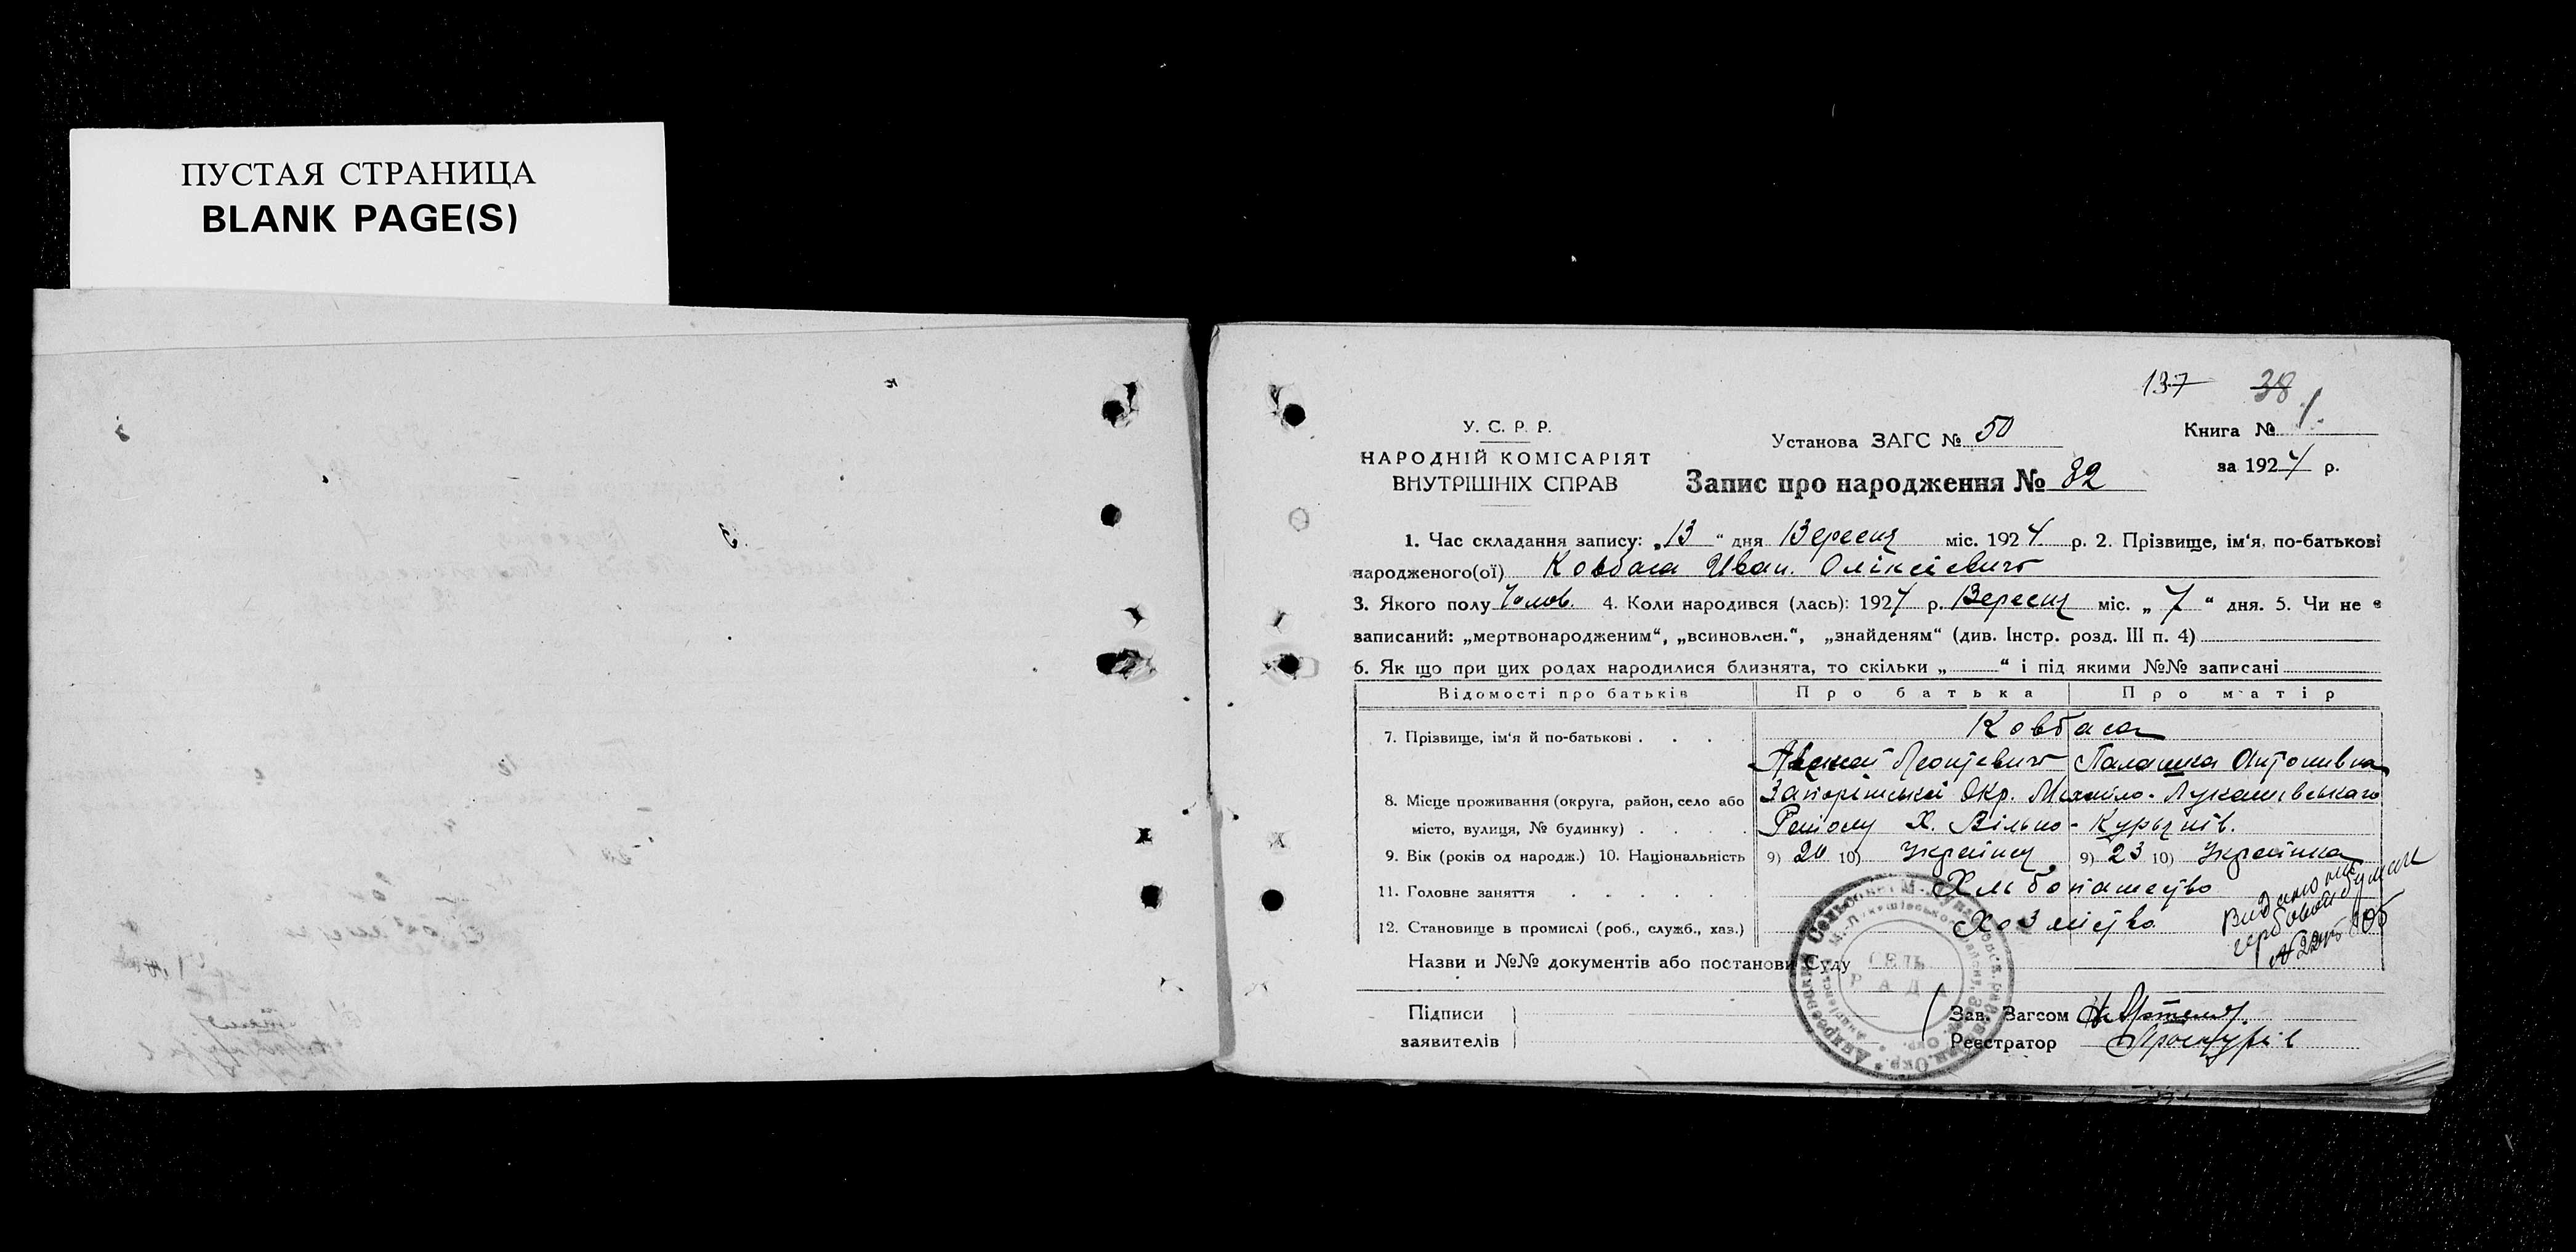 ПУСТАЯ СТРАНИЦА
BLANK PAGE(S)
137 38
У. С. Р. Р.
НАРОДНІЙ КОМІСАРІЯТ
ВНУТРІШНІХ СПРАВ
Установа ЗАГС № 50
Книга № 1.
за 1924 р.
Запис про народження № 32
1. Час складання запису: „13“ дня Вересня міс. 1924 р. 2. Прізвище, ім‘я, по-батькові
народженого(ої) Ковбаса Иван. Оліксієвичъ
3. Якого полу Чолов. 4. Коли народився (лась): 1924 р. Вересня міс. „7“ дня. 5. Чи не є
записаний: „мертвонародженим“, „всиновлен.“, „знайденям“ (див. Інстр. розд. III п. 4)
6. Як що при цих родах народилися близнята, то скільки „ “ і під якими №№ записані
Відомості про батьків Про батька Про матір
7. Прізвище, ім‘я й по-батькові . . . .
Ковбаса
Леонтьевичъ Палашка Антонивна
8. Місце проживання (округа, район, село або
місто, вулиця, № будинку) . . . .
Запоріжської Окр. Михайло-Лукашівського
Району Х. Вільно-
9. Вік (років од народж.) 10. Національність
9) 20 10) Українец 9) 23 10) Українка
11. Головне заняття . . . . .
12. Становище в промислі (роб., служб., хаз.)
Видано на
гербовой бумаги
Назви и №№ документів або постанови Суду
СЕЛЬ
РАДА
Підписи
заявителів
Зав. Загсом
Реєстратор